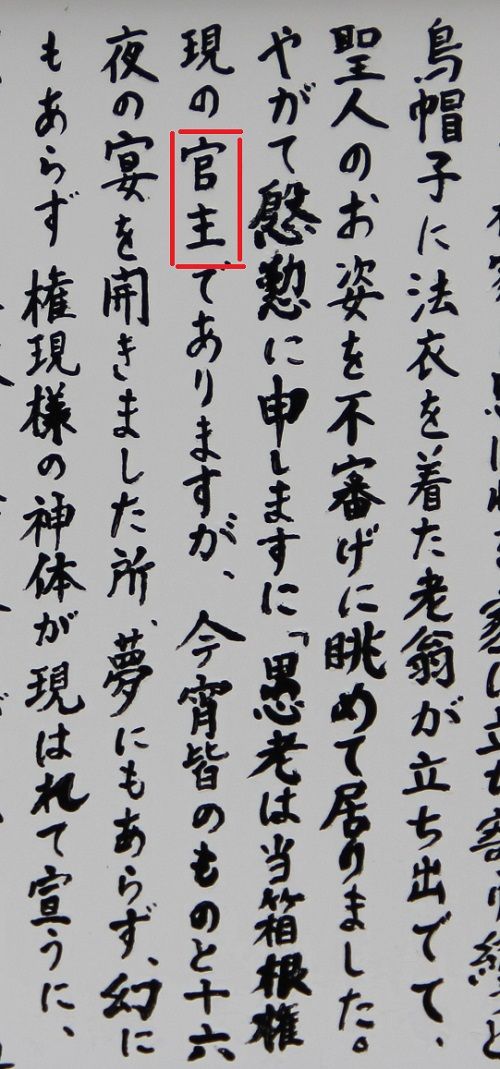 立ち寄り
烏帽子に法衣を着た老翁が立ち出でて、
聖人のお姿を不審げに眺めて居りました。
やがて慇懃に申しますに「愚老は当箱根権
現の官主でありますが、今宵皆のものと十六
夜の宴を開きました所、夢にもあらず、幻に
もあらず権現様の神体が現はれて宣うに、